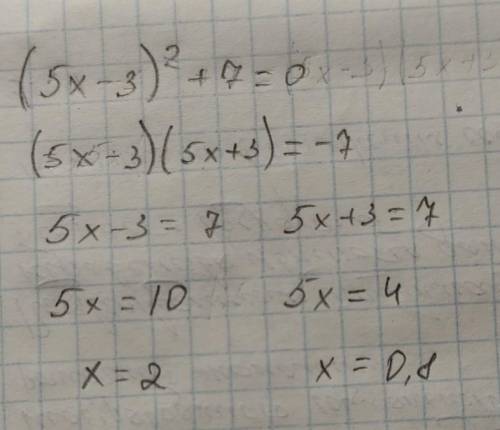 (5x-3)² +7=0
(5x-3)(5x+3)=-7
5x-3=7 5x+3=7
5x=10 5x=4
x=2 x=0,8